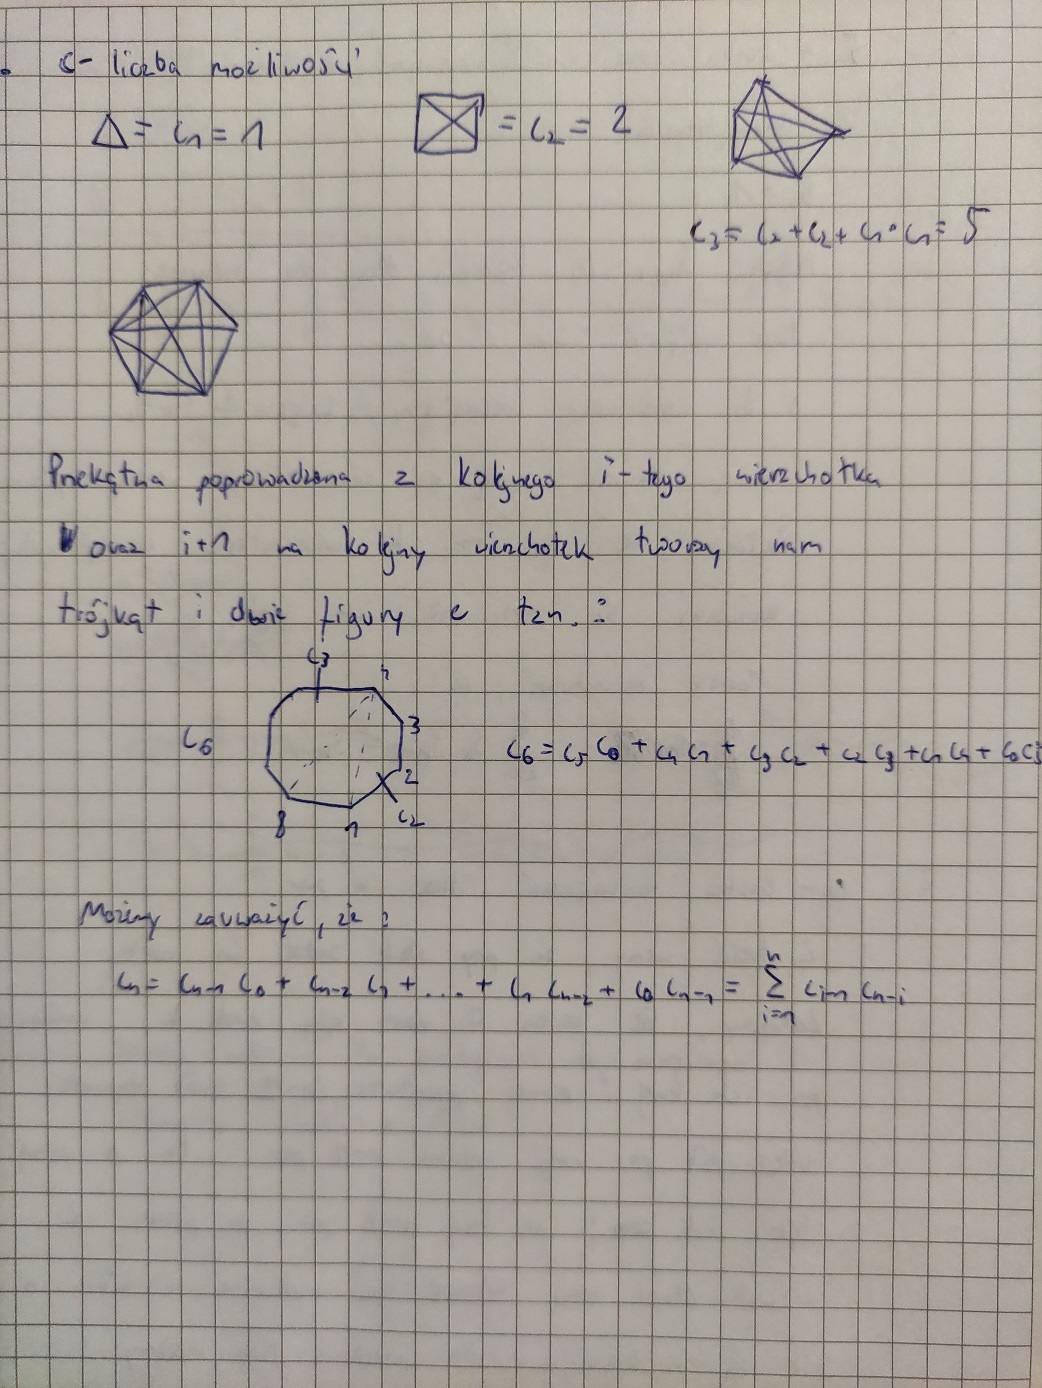 c- liczba możliwości
△ = c₁ = 1
= c₂ = 2
c₃ = c₂ + c₂ + c₁ · c₁ = 5
Przekątna poprowadzona z kolejnego i-tego wierzchołka
oraz i+1 na kolejny wierzchołek tworzy nam
trójkąt i dwie figury c tzn. :
c₃
4
3
c₆
2
c₂
8
1
c₆ = c₅ c₀ + c₄ c₁ + c₃ c₂ + c₂ c₃ + c₁ c₄ + c₀ c₅
Możemy zauważyć, że :
cₙ = cₙ₋₁ c₀ + cₙ₋₂ c₁ + .... + c₁ cₙ₋₂ + c₀ cₙ₋₁ = ∑ᵢ₌₁ⁿ cᵢ₋₁ cₙ₋ᵢ